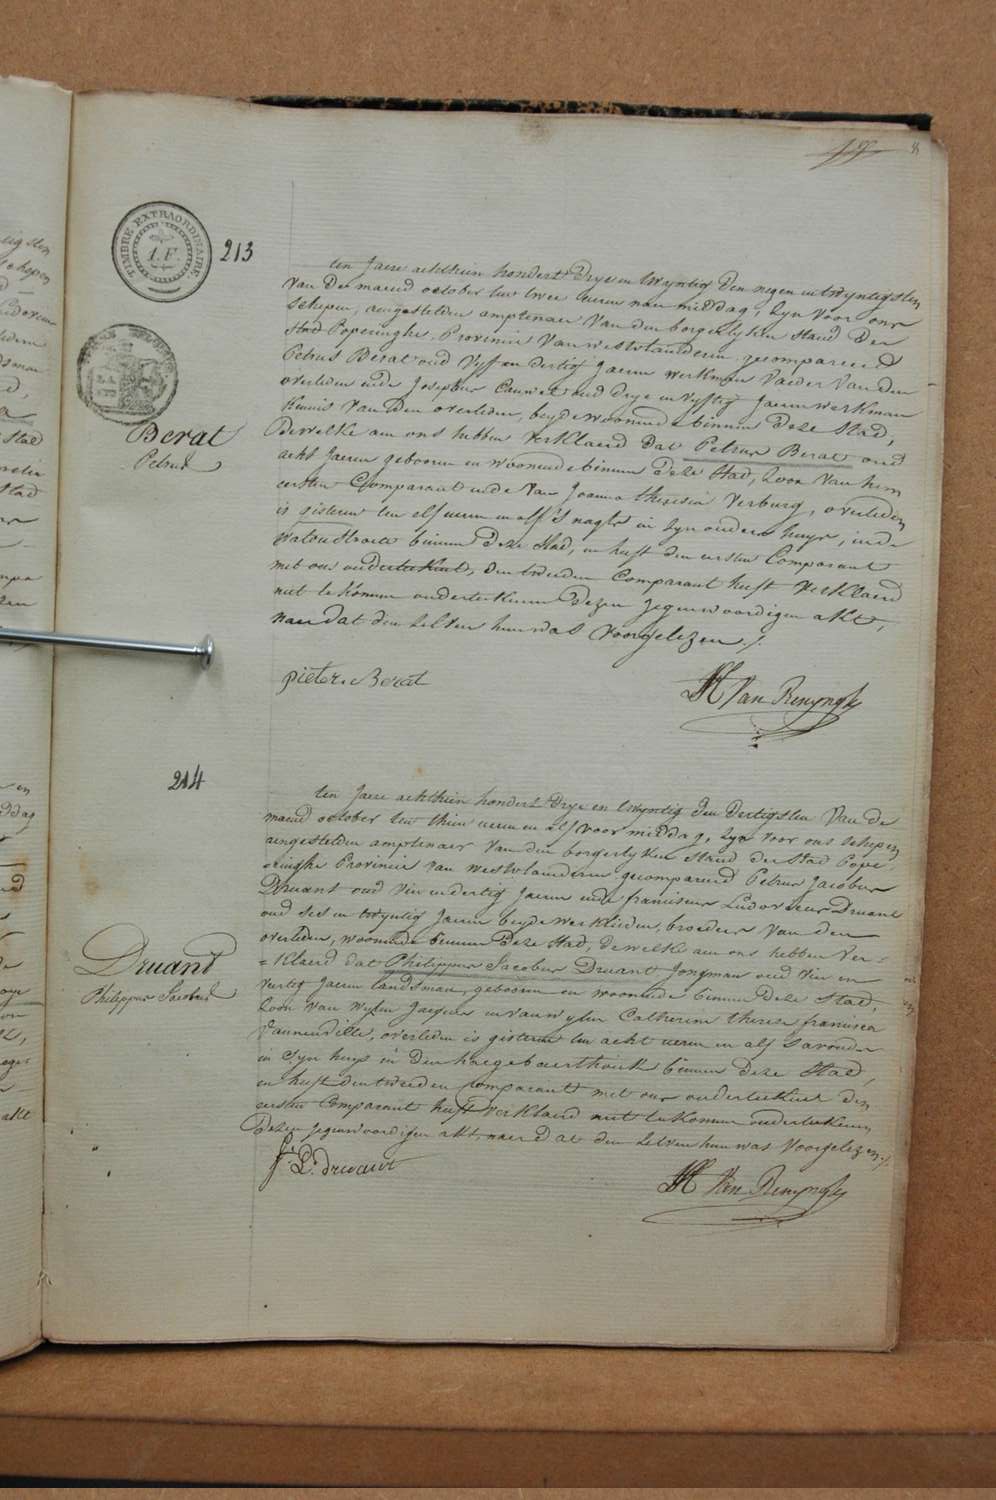 TIMBRE EXTRAORDINAIRE
1.F.
213
Berat
Petrus
ten Jaere achthien hondert Drye en twyntig den negen en twyntigsten
van de maend october ten twee uren naer middag, zyn voor ons
schepen, aengestelden amptenaer van den borgerlyken stand der
stad Poperinghe, Provincie van westvlaenderen gecompareerd
Petrus Berat oud vyf en dertig Jaeren werkman vader van den
overleden ende Josephus Cauwet oud drye en vyftig Jaeren werkman
kennis van den overleden, beyde woonende binnen deze stad,
dewelke aen ons hebben verklaerd dat Petrus Berat oud
acht Jaeren geboren en woonende binnen deze stad, zoon van hem
eersten Comparant ende van Joanna theresia Verburg, overleden
is gisteren ten elf uren en alf 's nagts in zyn ouders huys, in de
watou straete binnen deze stad, en heeft den eersten Comparant
met ons onderteekent, den tweeden Comparant heeft verklaerd
niet te konnen onderteekenen dezen jegenwoordigen akt,
naer dat den zelven hun was voorgelezen./.
pieter Berat
H Van Renynghe
214
Druant
Philippus Jacobus
ten Jaere achthien hondert Drye en twyntig den dertigsten van de
maend october ten thien uren en alf voor middag, zyn voor ons schepen
aengestelden amptenaer van den borgerlyken stand der stad Pope
=ringhe Provincie van westvlaenderen gecompareerd Petrus Jacobus
Druant oud vier en dertig Jaeren ende franciscus Ludovicus Druant
oud ses en twyntig Jaeren beyde werklieden, broeders van den
overleden, woonende binnen deze stad, dewelke aen ons hebben ver=
=klaerd dat Philippus Jacobus Druant Jongman oud vier en
veertig Jaeren landsman, geboren en woonende binnen deze stad,
zoon van wylen Jacques en van wylen Catherine therese francisca
Vanneuville, overleden is gisteren ten acht uren en alf savonds
in zyn huys in den haegebaerthoek binnen deze stad,
en heeft den tweeden comparant met ons onderteekent den
eersten Comparant heeft verklaerd niet te konnen onderteekenen
dezen jegenwoordigen akt, naer dat den zelven hun was voorgelezen./.
f. L. druant
H Van Renynghe